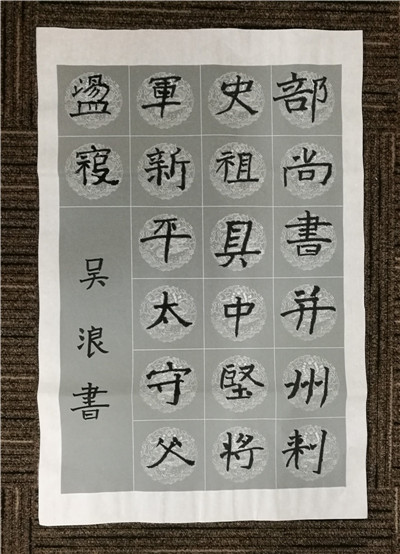 部尚書并州刺
史祖具中堅將
軍新平太守父
盪寇
吴浪書